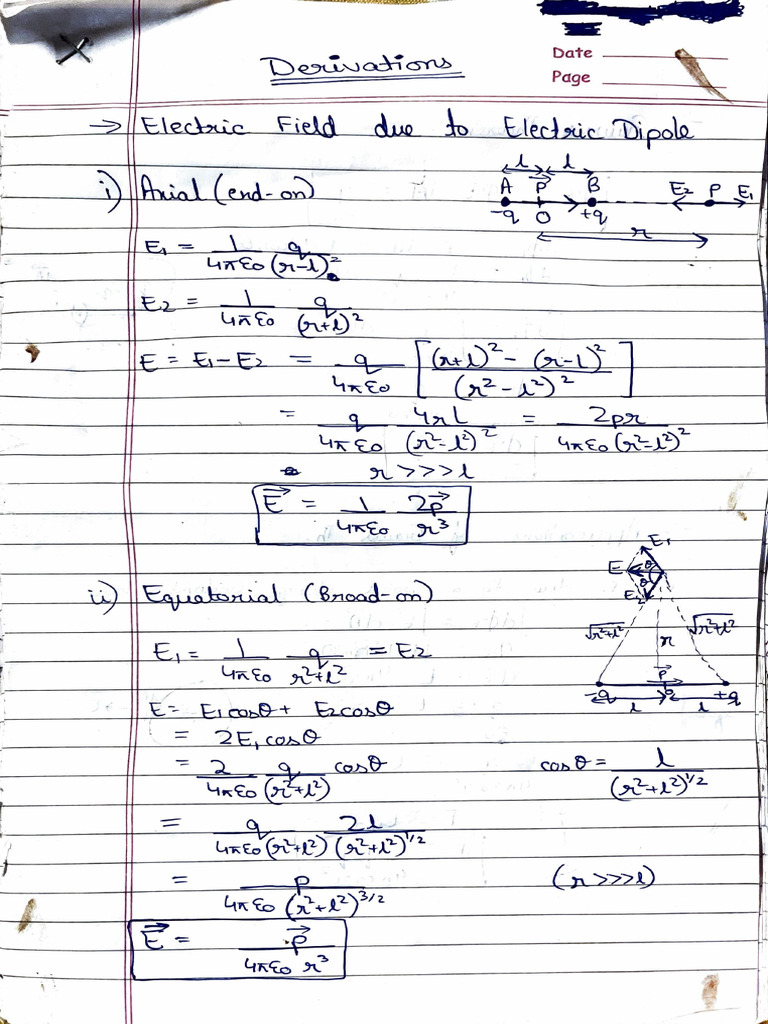 Derivations
Date
Page
→ Electric Field due to Electric Dipole
i) Axial (end-on)
l l
A P⃗ B E₂ P E₁
-q O +q
r
E₁ = 1/4πε₀ q/(r-l)²
E₂ = 1/4πε₀ q/(r+l)²
E = E₁ - E₂ = q/4πε₀ [(r+l)² - (r-l)²/(r² - l²)²]
= q/4πε₀ 4rl/(r²-l²)² = 2pr/4πε₀(r²-l²)²
r >>> l
E⃗ = 1/4πε₀ 2p⃗/r³
ii) Equatorial (Broad-on)
E₁
E θ
θ
E₂
√r²+l² r √r²+l²
P⃗
-q +q
l l
E₁ = 1/4πε₀ q/r²+l² = E₂
E = E₁cosθ + E₂cosθ
= 2E₁cosθ
= 2/4πε₀ q/(r²+l²) cosθ cosθ = l/(r²+l²)^1/2
= q/4πε₀(r²+l²) 2l/(r²+l²)^1/2
= p/4πε₀(r²+l²)^3/2 (r>>>l)
E⃗ = p⃗/4πε₀ r³